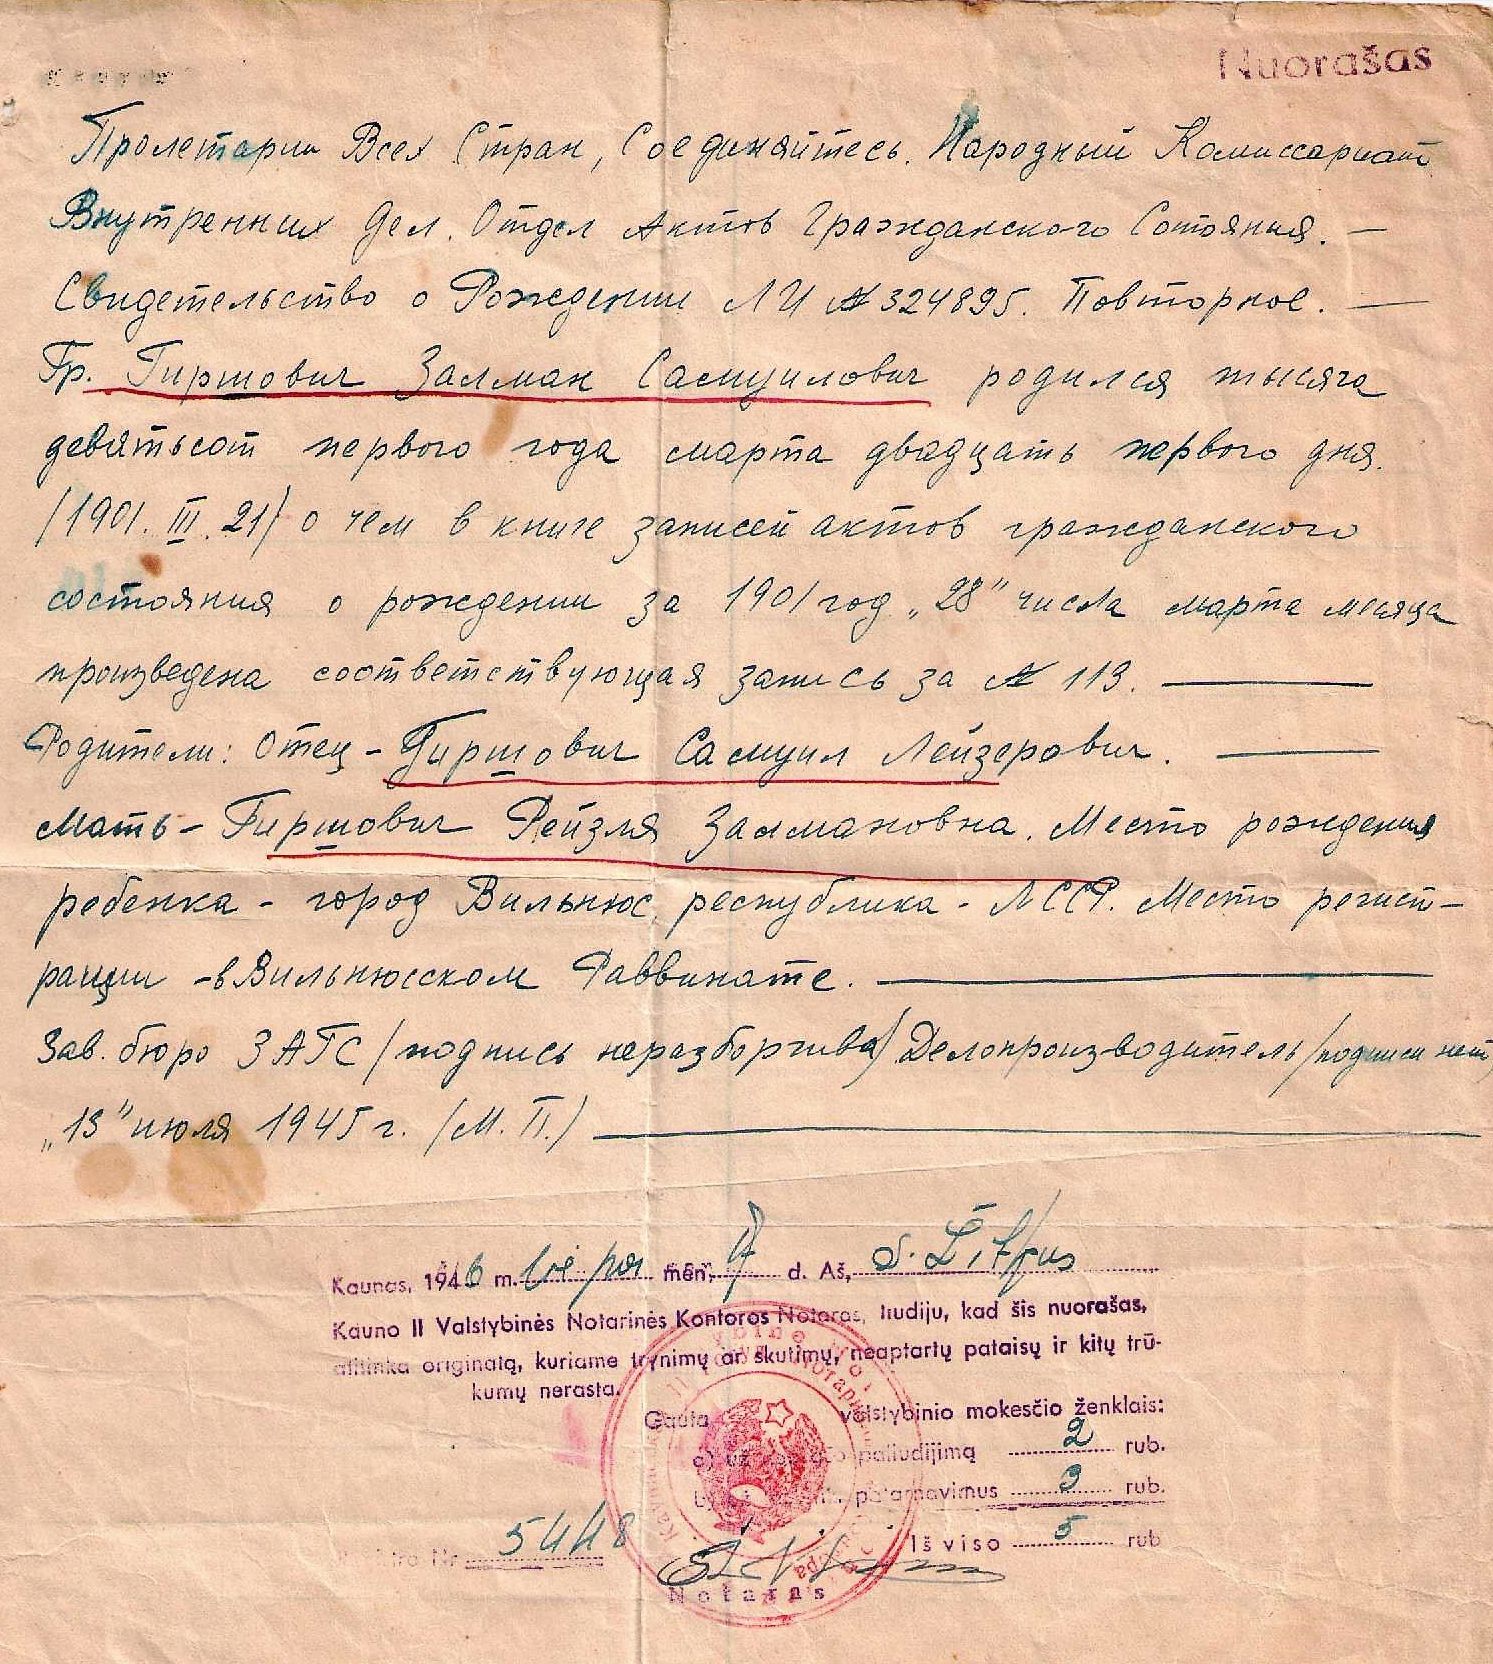 Nuorašas
Пролетарии Всех Стран, Соединяйтесь. Народный Комиссариат
Внутренних Дел. Отдел Актов Гражданского Сотояния. —
Свидетельство о Рождении ЛИ № 324895. Повторное. —
Гр. Гиршович Залман Самуилович родился тысяча
девятьсот первого года марта двадцать первого дня.
/1901. III. 21/ о чем в книге записей актов гражданского
состояния о рождении за 1901 год „28" числа марта месяца
произведена соответствующая запись за № 113. —
Родители: Отец - Гиршович Самуил Лейзерович. —
Мать - Гиршович Рейзля Залмановна. Место рождения
ребенка - город Вильнюс, республика - ЛССР. Место регист-
рации - в Вильнюсском Раввинате. —
Зав. бюро ЗАГС /подпись неразборчива/ Делопроизводитель /подписи нет/
„13" июля 1945 г. /М. П./ —
Kaunas, 1946 m. men, d. Aš,
Kauno II Valstybinės Notarinės Kontoros Notaras, liudiju, kad šis nuorašas,
atitinka originalą, kuriame trynimų ar skutimų, neaptartų pataisų ir kitų trū-
kumų nerasta.
Gauta valstybinio mokesčio ženklais:
a) už paliudijimą 2 rub.
patarnavimus 3 rub.
Iš viso 5 rub
Nr. 5448
Notaras